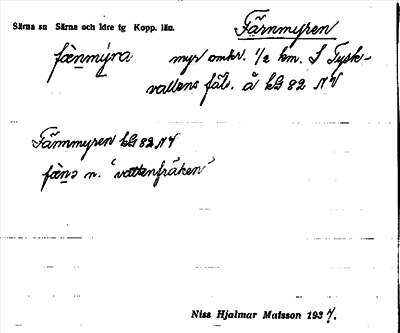 Särna sn Särna och Idre tg Kopp. län.
Färnmyren
fæ̀nmýra myr omkr. 1/2 km. S Tysk-
vallens fäb. å LG 82 NV
Färnmyren LG 82 NV
fæ̀nɔ n. "vattenfräken"
Niss Hjalmar Matsson 1937.